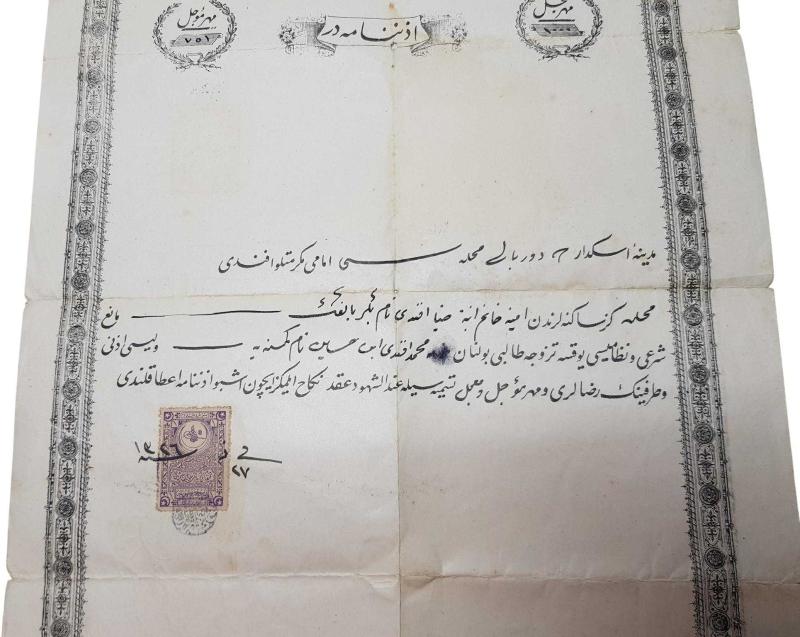 مهر مؤجل
٧٥١
اذننامه در
مهر معجل
١٠٠٠
مدینهٔ اسکدار دوربالی محله سی امامی مکرمتلو افندی
محلهٔ کز ساکنلرندن امینه خانم ابنة ضیا افندی نام بکر بالغه‌نك مانع
شرعی و نظامیسی یوقسه تزوجه طالبی بولنان محمد افندی ابن حسین نام کمسنه یه ولیسی اذنی
و طرفینك رضالری و مهر مؤجل و معجل تسمیه سیله عند الشهود عقد نکاح ایلمکز ایچون اشبو اذننامه اعطا قلندی
فی ٢٧ سنه ١٣٢٦